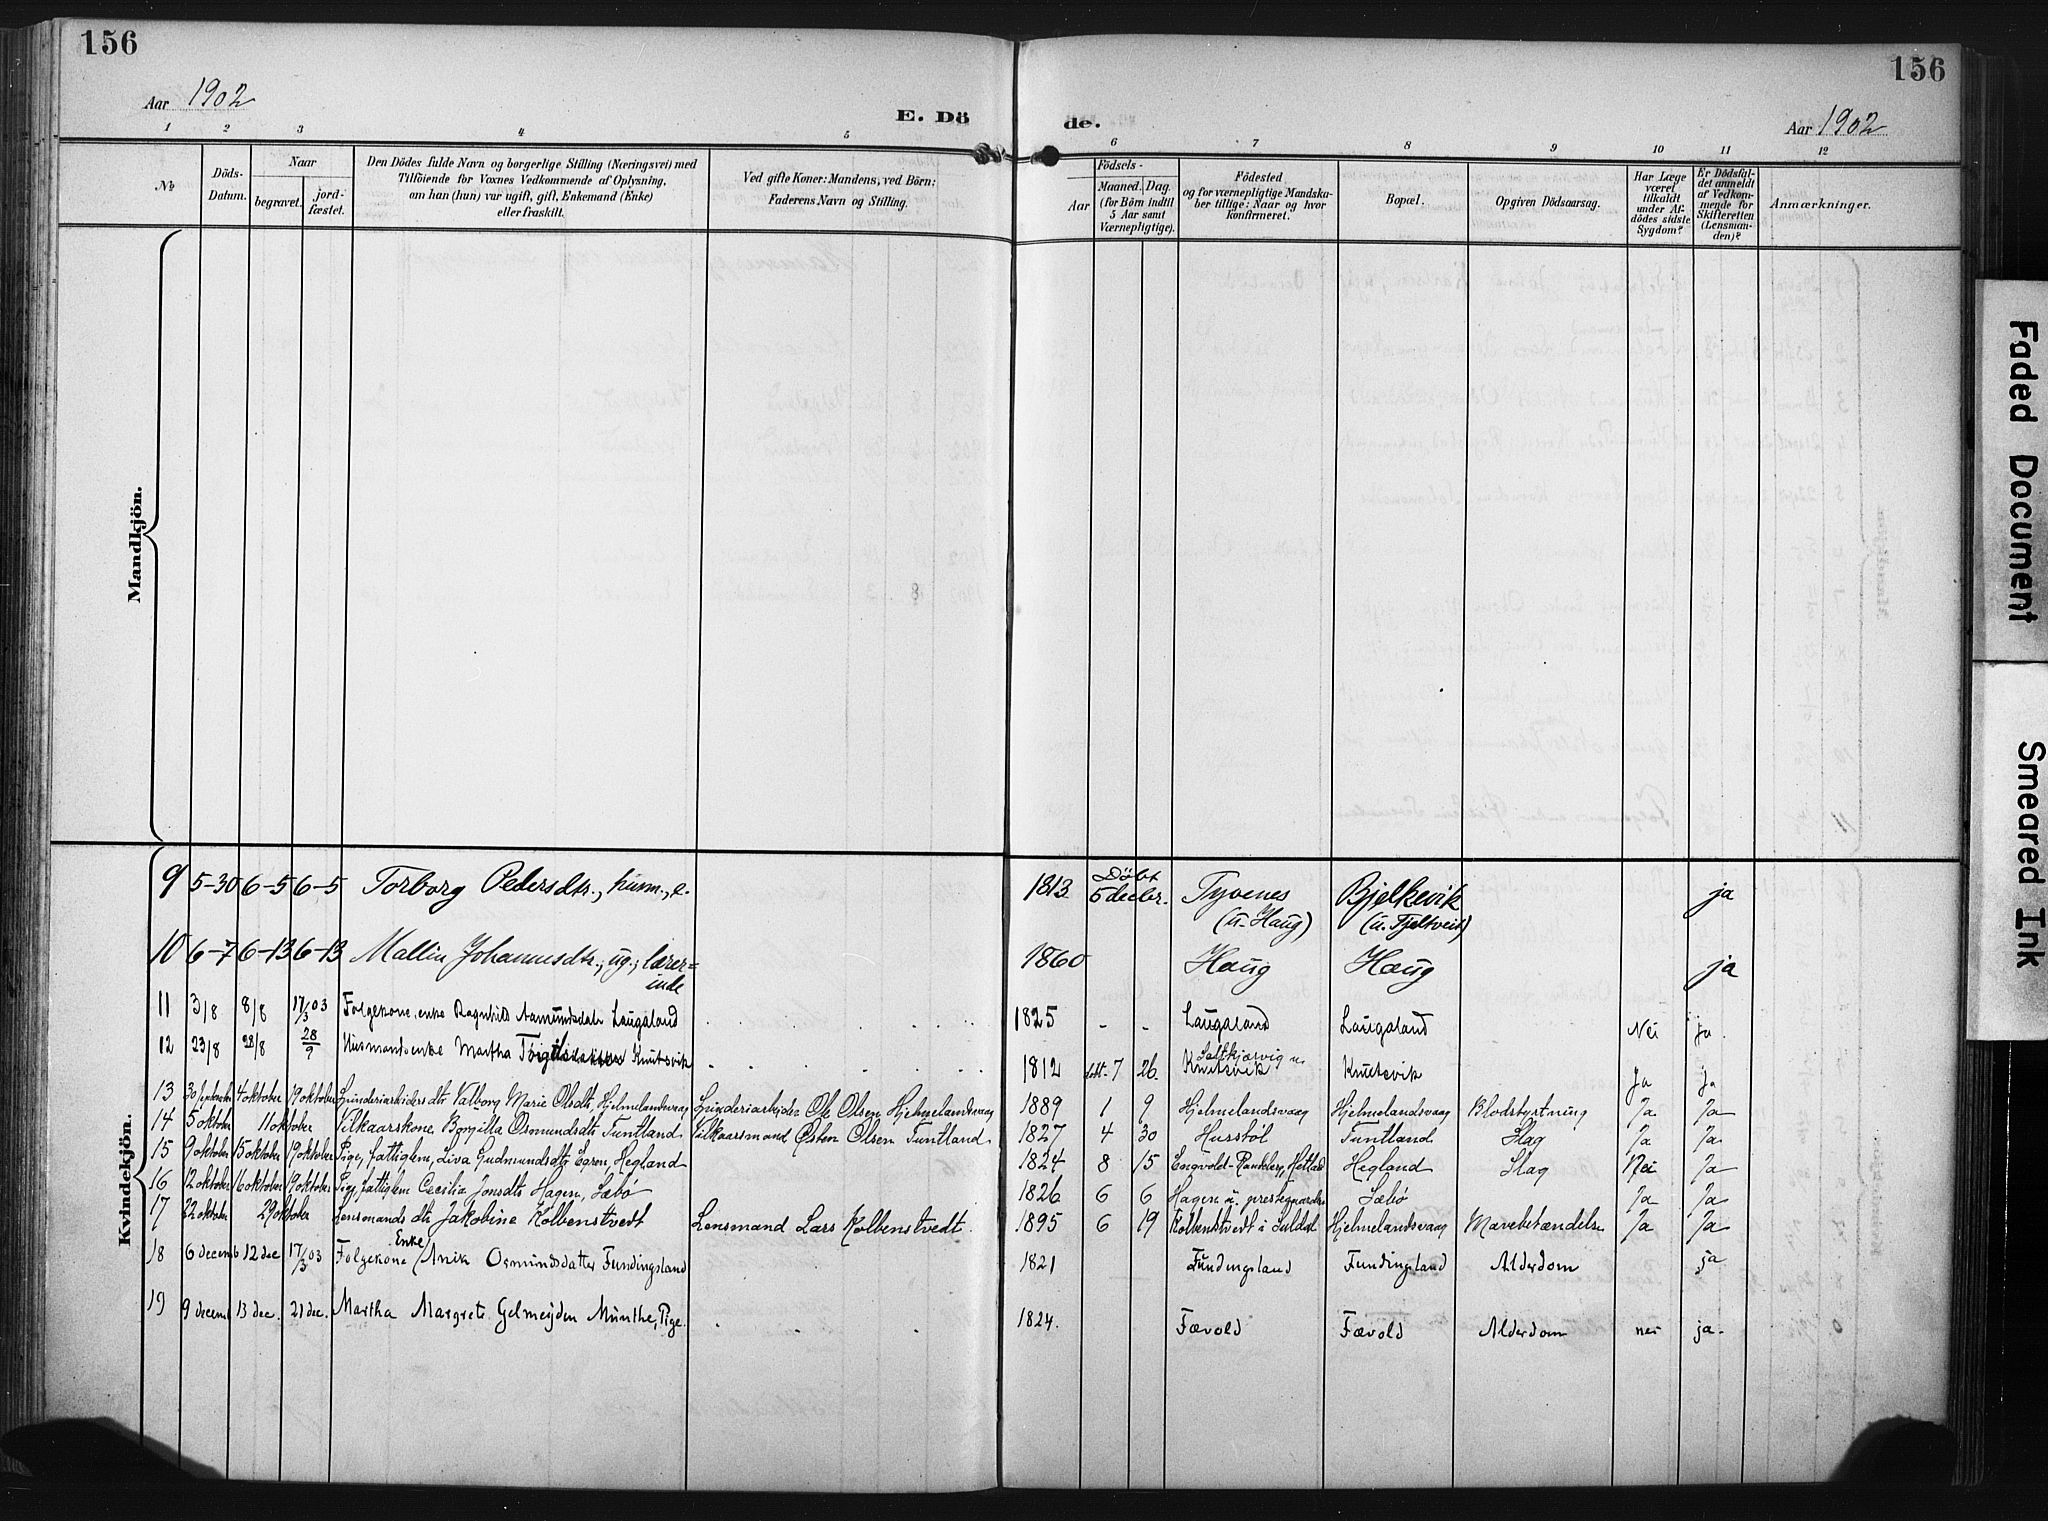 156
156
Aar 1902
E. Dö de.
Aar 1902
1 2 3 4 5 6 7 8 9 10 11 12
№
Döds-Datum.
Naar
begravet.
jord-fæstet.
Den Dödes fulde Navn og borgerlige Stilling (Næringsvei) med
Tilföiende for Voxnes Vedkommende af Oplysning,
om han (hun) var ugift, gift, Enkemand (Enke)
eller fraskilt.
Ved gifte Koner: Mandens, ved Börn:
Faderens Navn og Stilling.
Födsels-
Aar
Maaned. Dag.
(for Börn indtil
5 Aar samt
Værnepligtige).
Födested
og for værnepligtige Mandska-
ber tillige: Naar og hvor
konfirmeret.
Bopæl.
Opgiven Dödsaarsag.
Har Læge
været
tilkaldt
under Af-
dödes sidste
Sygdom?
Er Dödsfal-
det anmeldt
af Vedkom-
mende for
Skifteretten
(Lensman-
den)?
Anmærkninger.
Mandkjön.
Kvindekjön.
9 5-30 6-5 6-5 Torborg Pedersdtr., husm., e. 1813 Döbt 5 decbr. Tyvenes (u. Haug) Bjelkevik (u. Fjeltveit) ja
10 6-7 6-13 6-13 Mallin Johannesdtr., ug., lærer=
inde 1860 Haug Haug ja
11 3/8 8/8 17/3 03 Folgekone, enke Ragnhild Aamundsdatr Laugaland 1825 - - Laugaland Laugaland Nei ja.
12 23/8 28/8 28/9 Husmandsenke Martha Knutsvik 1812 döbt. 7 26. Knutsvik Knutsvik Ja Ja
13 30 september 4 oktober 19 oktober datr Valborg Marie Olsdtr, Hjelmelandsvaag Ole Olsen Hjelmelandsvaag 1889 1 9 Hjelmelandsvaag Hjelmelandsvaag Blodstyrtning Ja Ja
14 5 oktober 11 oktober Vilkaarskone Borgilla Osmundsdtr Tuntland Vilkaarsmand Østen Olsen Tuntland 1827 4 30 Husstöl Tuntland Slag Ja Ja
15 9 oktober 15 oktober 19 oktober Pige, fattiglem, Liva Gudmundsdtr Egren, Hegland 1824 8 15 Hetland Hegland Slag Nei Ja
16 12 oktober 16 oktober 19 oktober Pige, fattiglem Cecilia Jonsdtr Hagen, Sæbø 1826 6 6 Hagen u. prestegaarden Sæbø Ja Ja
17 22 oktober 29 oktober Lensmands dtr Jakobine Kolbenstvedt Lensmand Lars Kolbenstvedt. 1895 6 19 Kolbenstvedt i Suldal Hjelmelandsvaag Mavebetændelse Ja Ja
18 6 decemb 12 dec 17/3 03 Folgekone Enke Anik Osmundsdatter Fundingsland 1821 Fundingsland Fundingsland Alderdom ja
19 9 decemb 13 dec. 21 dec. Martha Margrete Gelmeyden Munthe, Pige. 1824. Fævold Fævold Alderdom nei ja.
Faded Document
Smeared Ink